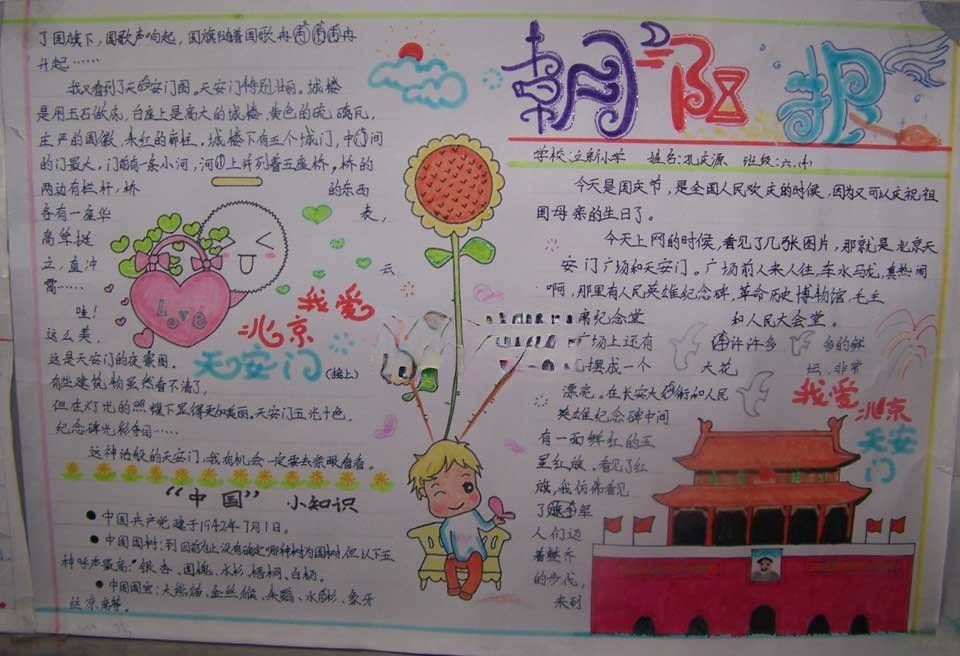 朝阳报
学校:立新小学 姓名:孔庆源 班级:六.
今天是国庆节,是全国人民欢庆的时候,因为又可以庆祝祖
国母亲的生日了。
今天上网的时候,看见了几张图片,那就是北京天
安门广场和天安门。广场前人来人往,车水马龙,真热闹
啊,那里有人民英雄纪念碑,革命历史博物馆,毛主
席纪念堂 和人民大会堂。
广场上还有 许许多多的鲜
花摆成一个 大花坛,非常
漂亮。在长安大街和人民
英雄纪念碑中间
有一面鲜红的五
星红旗,看见了红
旗,我仿佛看见
了
人们迈
着整齐
的步伐,
来到
我爱
北京
天安
门
了国旗下,国歌声响起,国旗随着国歌冉冉
升起……
我又看到了天安门图。天安门特别壮丽。城楼
是用玉石做底,台座上是高大的城楼,黄色的琉璃瓦,
庄严的国徽,朱红的廊柱,城楼下有五个城门,中间
的门最大,门前有一条小河,河上并列着五座桥,桥的
两边有栏杆,桥 的东西
各有一座华 表,
高耸挺
立,直冲 云
霄……
哇!
这么美,
这是天安门的夜景图。
有些建筑物虽然看不清了,
但在灯光的照耀下显得更加美丽。天安门五光十色,
纪念碑光彩夺目……
这神话般的天安门,我有机会一定要去亲眼看看。
Love
我爱
北京
天安门
(接上)
“中国” 小知识
●中国共产党建于1942年7月1日。
●中国国树:到目前为止,没有确定哪种树为国树,但以下五
种呼声最高:银杏、国槐、水杉、梧桐、白杨。
●中国国宝:大熊猫、金丝猴、朱鹮、水杉、象牙